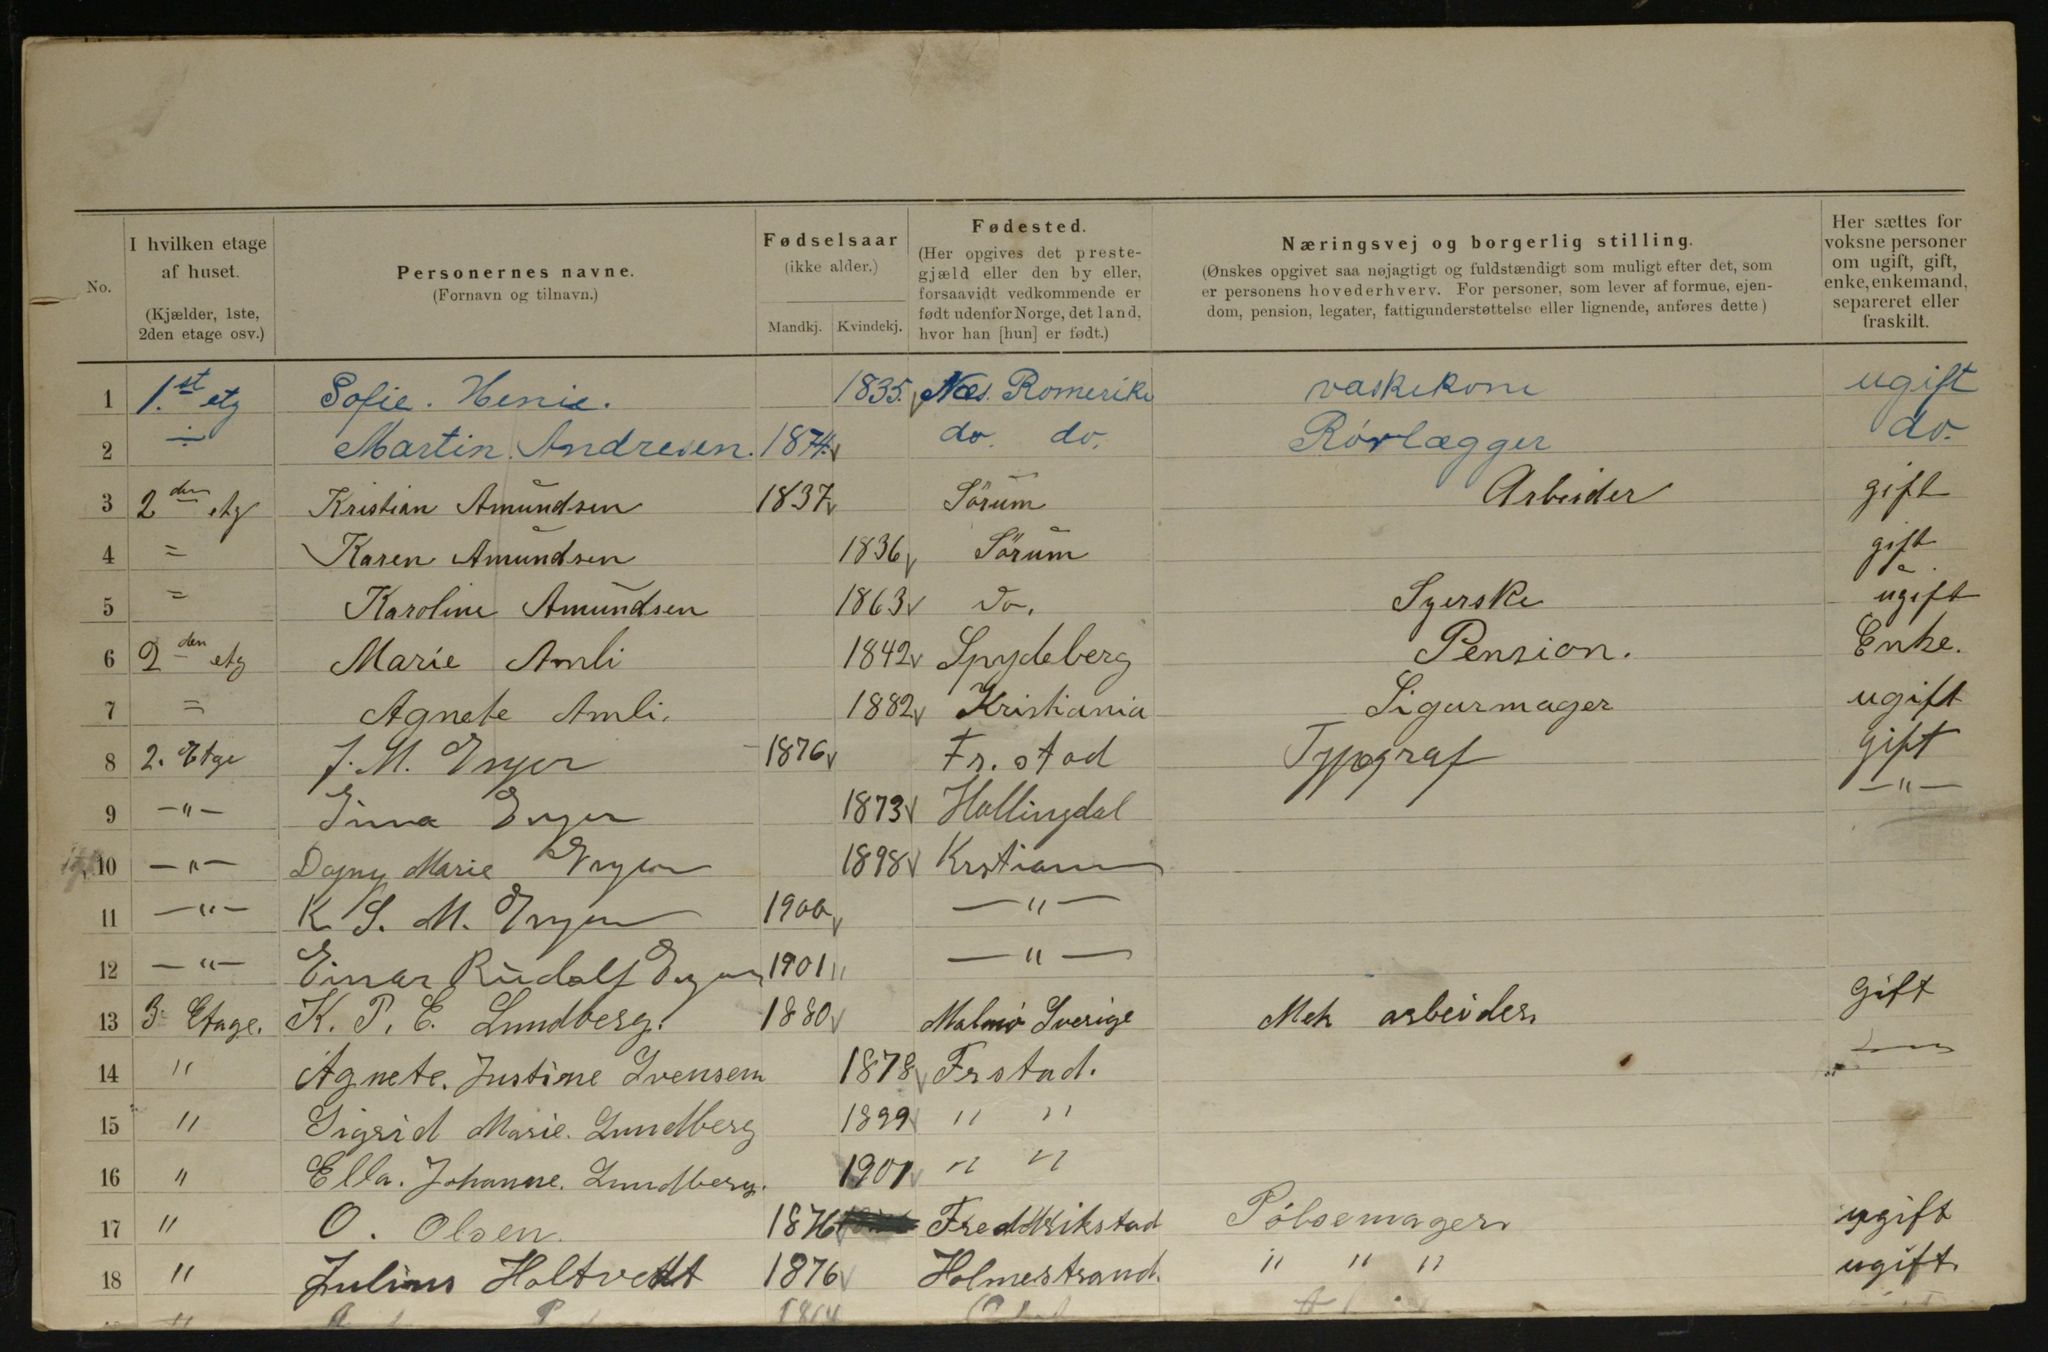 No.
I hvilken etage af huset.
(Kjælder, 1ste, 2den etage osv.)
Personernes navne.
(Fornavn og tilnavn.)
Fødselsaar
(ikke alder.)
Mandkj. Kvindekj.
Fødested.
(Her opgives det prestegjæld eller den by eller, forsaavidt vedkommende er født udenfor Norge, det land, hvor han [hun] er født.)
Næringsvej og borgerlig stilling.
(Ønskes opgivet saa nøjagtigt og fuldstændigt som muligt efter det, som er personens hovederhverv. For personer, som lever af formue, ejendom, pension, legater, fattigunderstøttelse eller lignende, anføres dette)
Her sættes for voksne personer om ugift, gift, enke, enkemand, separeret eller fraskilt.
1 1.st etg Sofie. Henie. 1835. Næs. Romerike vaskekone ugift
2 ÷ Martin Andresen. 1874. do. do. Rørlægger do.
3 2 den etg Kristian Amundsen 1837 Sörum Arbeider gift
4 = Karen Amundsen 1836 Sörum gift
5 = Karoline Amundsen 1863 do. Syerske ugift
6 2 den etg Marie Amli 1842 Spydeberg Pension. Enke.
7 = Agnete Amli. 1882 Kristiania Sigarmager ugift
8 2. Etge J. M. 1876 Fr.stad Typograf gift
9 —"— 1873 Hallingdal —"—
10 —"— Dagny Marie 1898 Krstiania
11 —"— K. S. M. 1900 —"—
12 —"— Einar Rudolf 1901 —"—
13 3 Etage. K. P. E. Lundberg. 1880 Malmö Sverige Mek arbeider gift
14 " Agnete. Justine Svensen 1878 Frstad.
15 " Sigrid Marie. Lundberg 1899 " "
16 " Ella. Johanne. Lundberg. 1901 " "
17 " O. Olsen. 1876 Fredrikstad Pölsemager ugift
18 " Julius Holtvedt 1876 Holmestrand. " " " ugift.